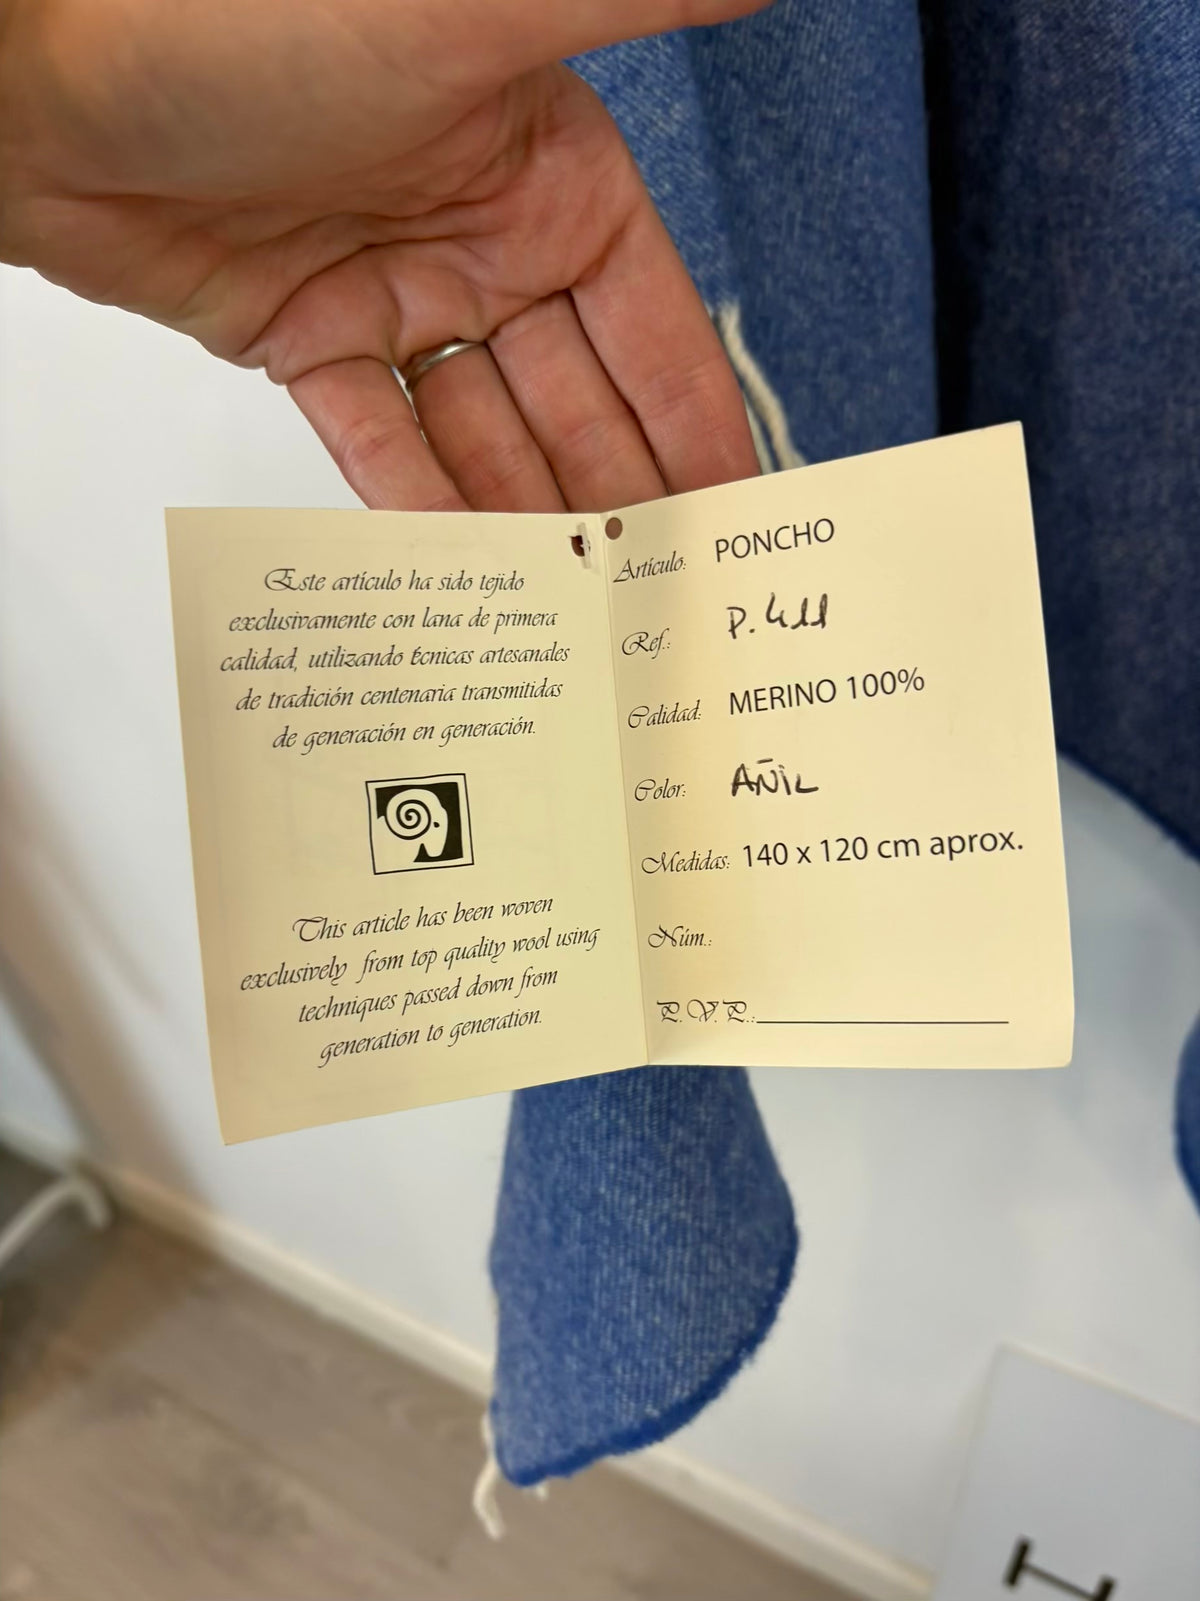 Este artículo ha sido tejido
exclusivamente con lana de primera
calidad, utilizando écnicas artesanales
de tradición centenaria transmitidas
de generación en generación.
This article has been woven
exclusively from top quality wool using
techniques passed down from
generation to generation.
Artículo: PONCHO
Ref.: P. 411
Calidad: MERINO 100%
Color: AÑIL
Medidas: 140 x 120 cm aprox.
Núm.:
P.V.P.: